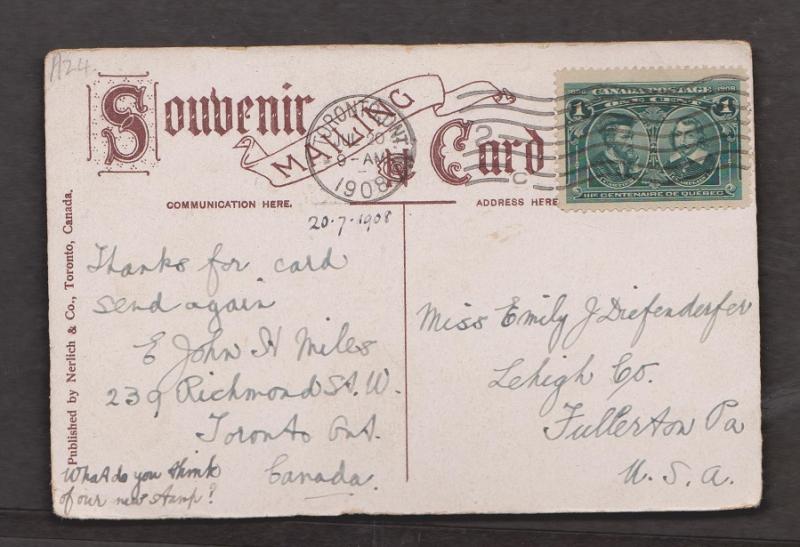 A24
Souvenir
MAILING
Card
TORONTO, ONT.
JUL 20
8-AM
1908
C
1608 CANADA POSTAGE 1908
1 ONE CENT 1
CARTIER CHAMPLAIN
IIIe CENTENAIRE DE QUÉBEC
COMMUNICATION HERE.
ADDRESS HERE
20.7.1908
Published by Nerlich & Co., Toronto, Canada.
Thanks for card
send again
E John H Miles
239 Richmond St. W.
Toronto Ont.
Canada.
What do you think
of our new stamp?
Miss Emily J Diefenderfer
Lehigh Co.
Fullerton Pa
U.S.A.